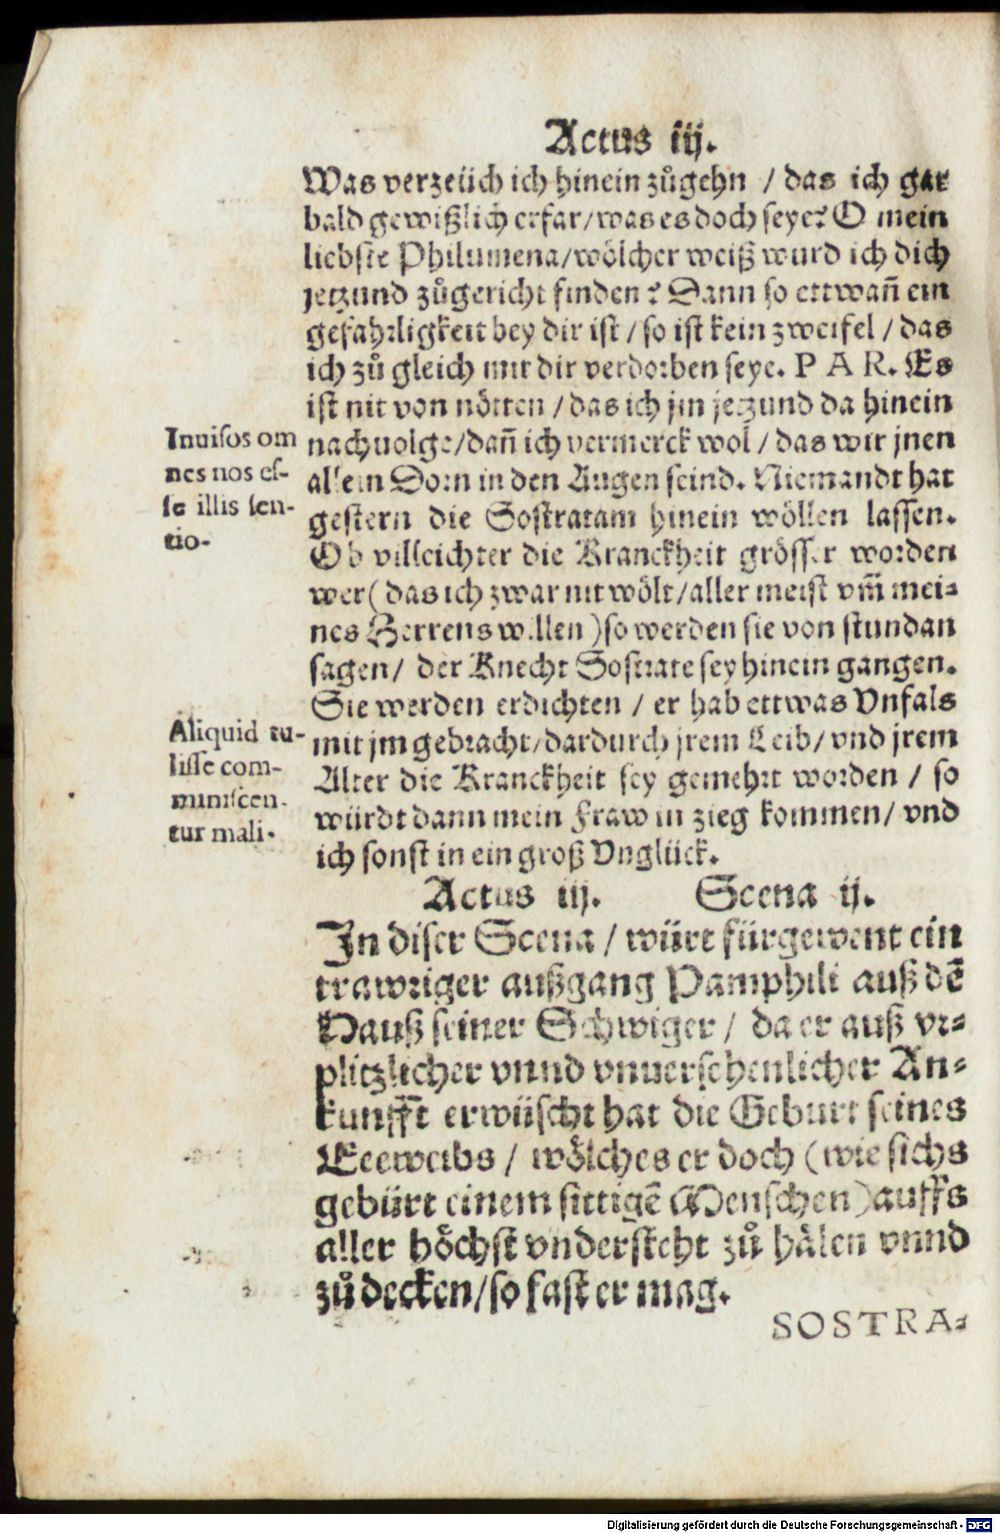 Actus iij.
Was verzeüch ich hinein zůgehn / das ich gar
bald gewißlich erfar/was es doch seye? O mein
liebste Philumena/wölcher weiß wurd ich dich
jetzund zůgericht finden? Dann so ettwañ ein
gefahrligkeit bey dir ist / so ist kein zweifel / das
ich zů gleich mit dir verdorben seye. P A R. Es
ist nit von nötten / das ich jm jetzund da hinein
nachuolge/dañ ich vermerck wol / das wir jnen
allein Dorn in den Augen seind. Niemandt hat
gestern die Sostratam hinein wöllen lassen.
Ob villeichter die Kranckheit grösser worden
wer ( das ich zwar nit wölt/aller meist vm̃ mei-
nes Herrens willen ) so werden sie von stundan
sagen/ der Knecht Sostrate sey hinein gangen.
Sie werden erdichten / er hab ettwas Vnfals
mit jm gebracht/dardurch jrem Leib/ vnd jrem
Alter die Kranckheit sey gemehrt worden / so
würdt dann mein Fraw in zieg kommen/ vnd
ich sonst in ein groß Vnglück.
Inuisos om
nes nos es-
se illis sen-
tio.
Aliquid tu-
lisse com-
miniscen-
tur mali.
Actus iij. Scena ij.
In diser Scena / würt fürgewent ein
trawriger außgang Pamphili auß dẽ
Hauß seiner Schwiger / da er auß vr-
plitzlicher vnnd vnuersehenlicher An-
kunfft erwüscht hat die Geburt seines
Eeeweibs / wölches er doch ( wie sichs
gebürt einem sittigẽ Menschen ) auffs
aller höchst vndersteht zů hälen vnnd
zů decken/so fast er mag.
SOSTRA-
Digitalisierung gefördert durch die Deutsche Forschungsgemeinschaft - DFG